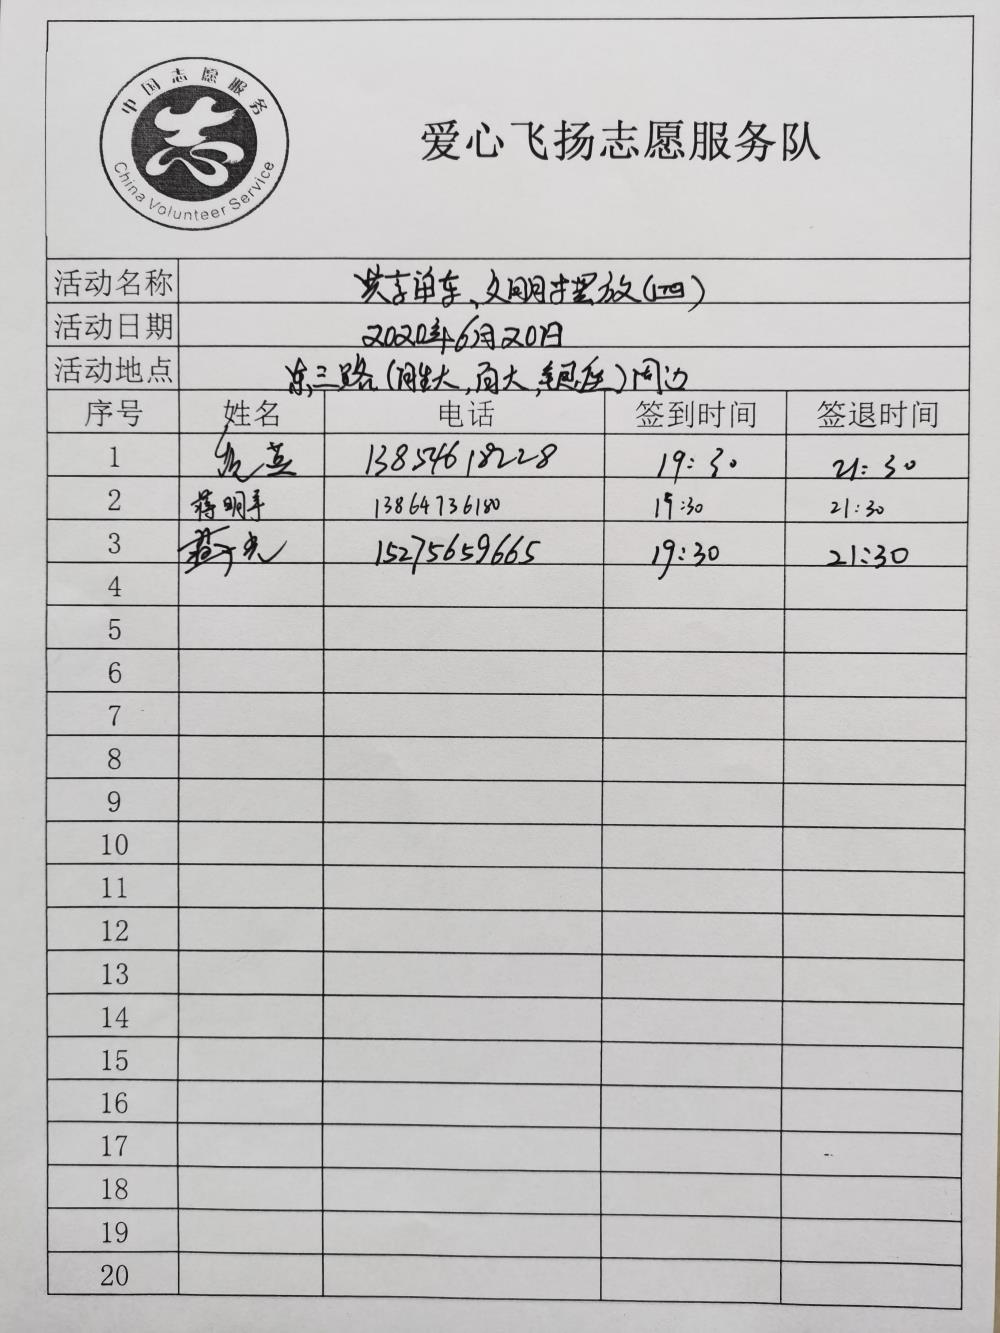 中国志愿服务
China Volunteer Service
爱心飞扬志愿服务队
活动名称 共享单车、文明摆放(四)
活动日期 2020年6月20日
活动地点 东三路(胜大,百大,银座)周边
序号 姓名 电话 签到时间 签退时间
1 英 13854618228 19:30 21:30
2 蒋明 13864736180 19:30 21:30
3 15275659665 19:30 21:30
4
5
6
7
8
9
10
11
12
13
14
15
16
17
18
19
20